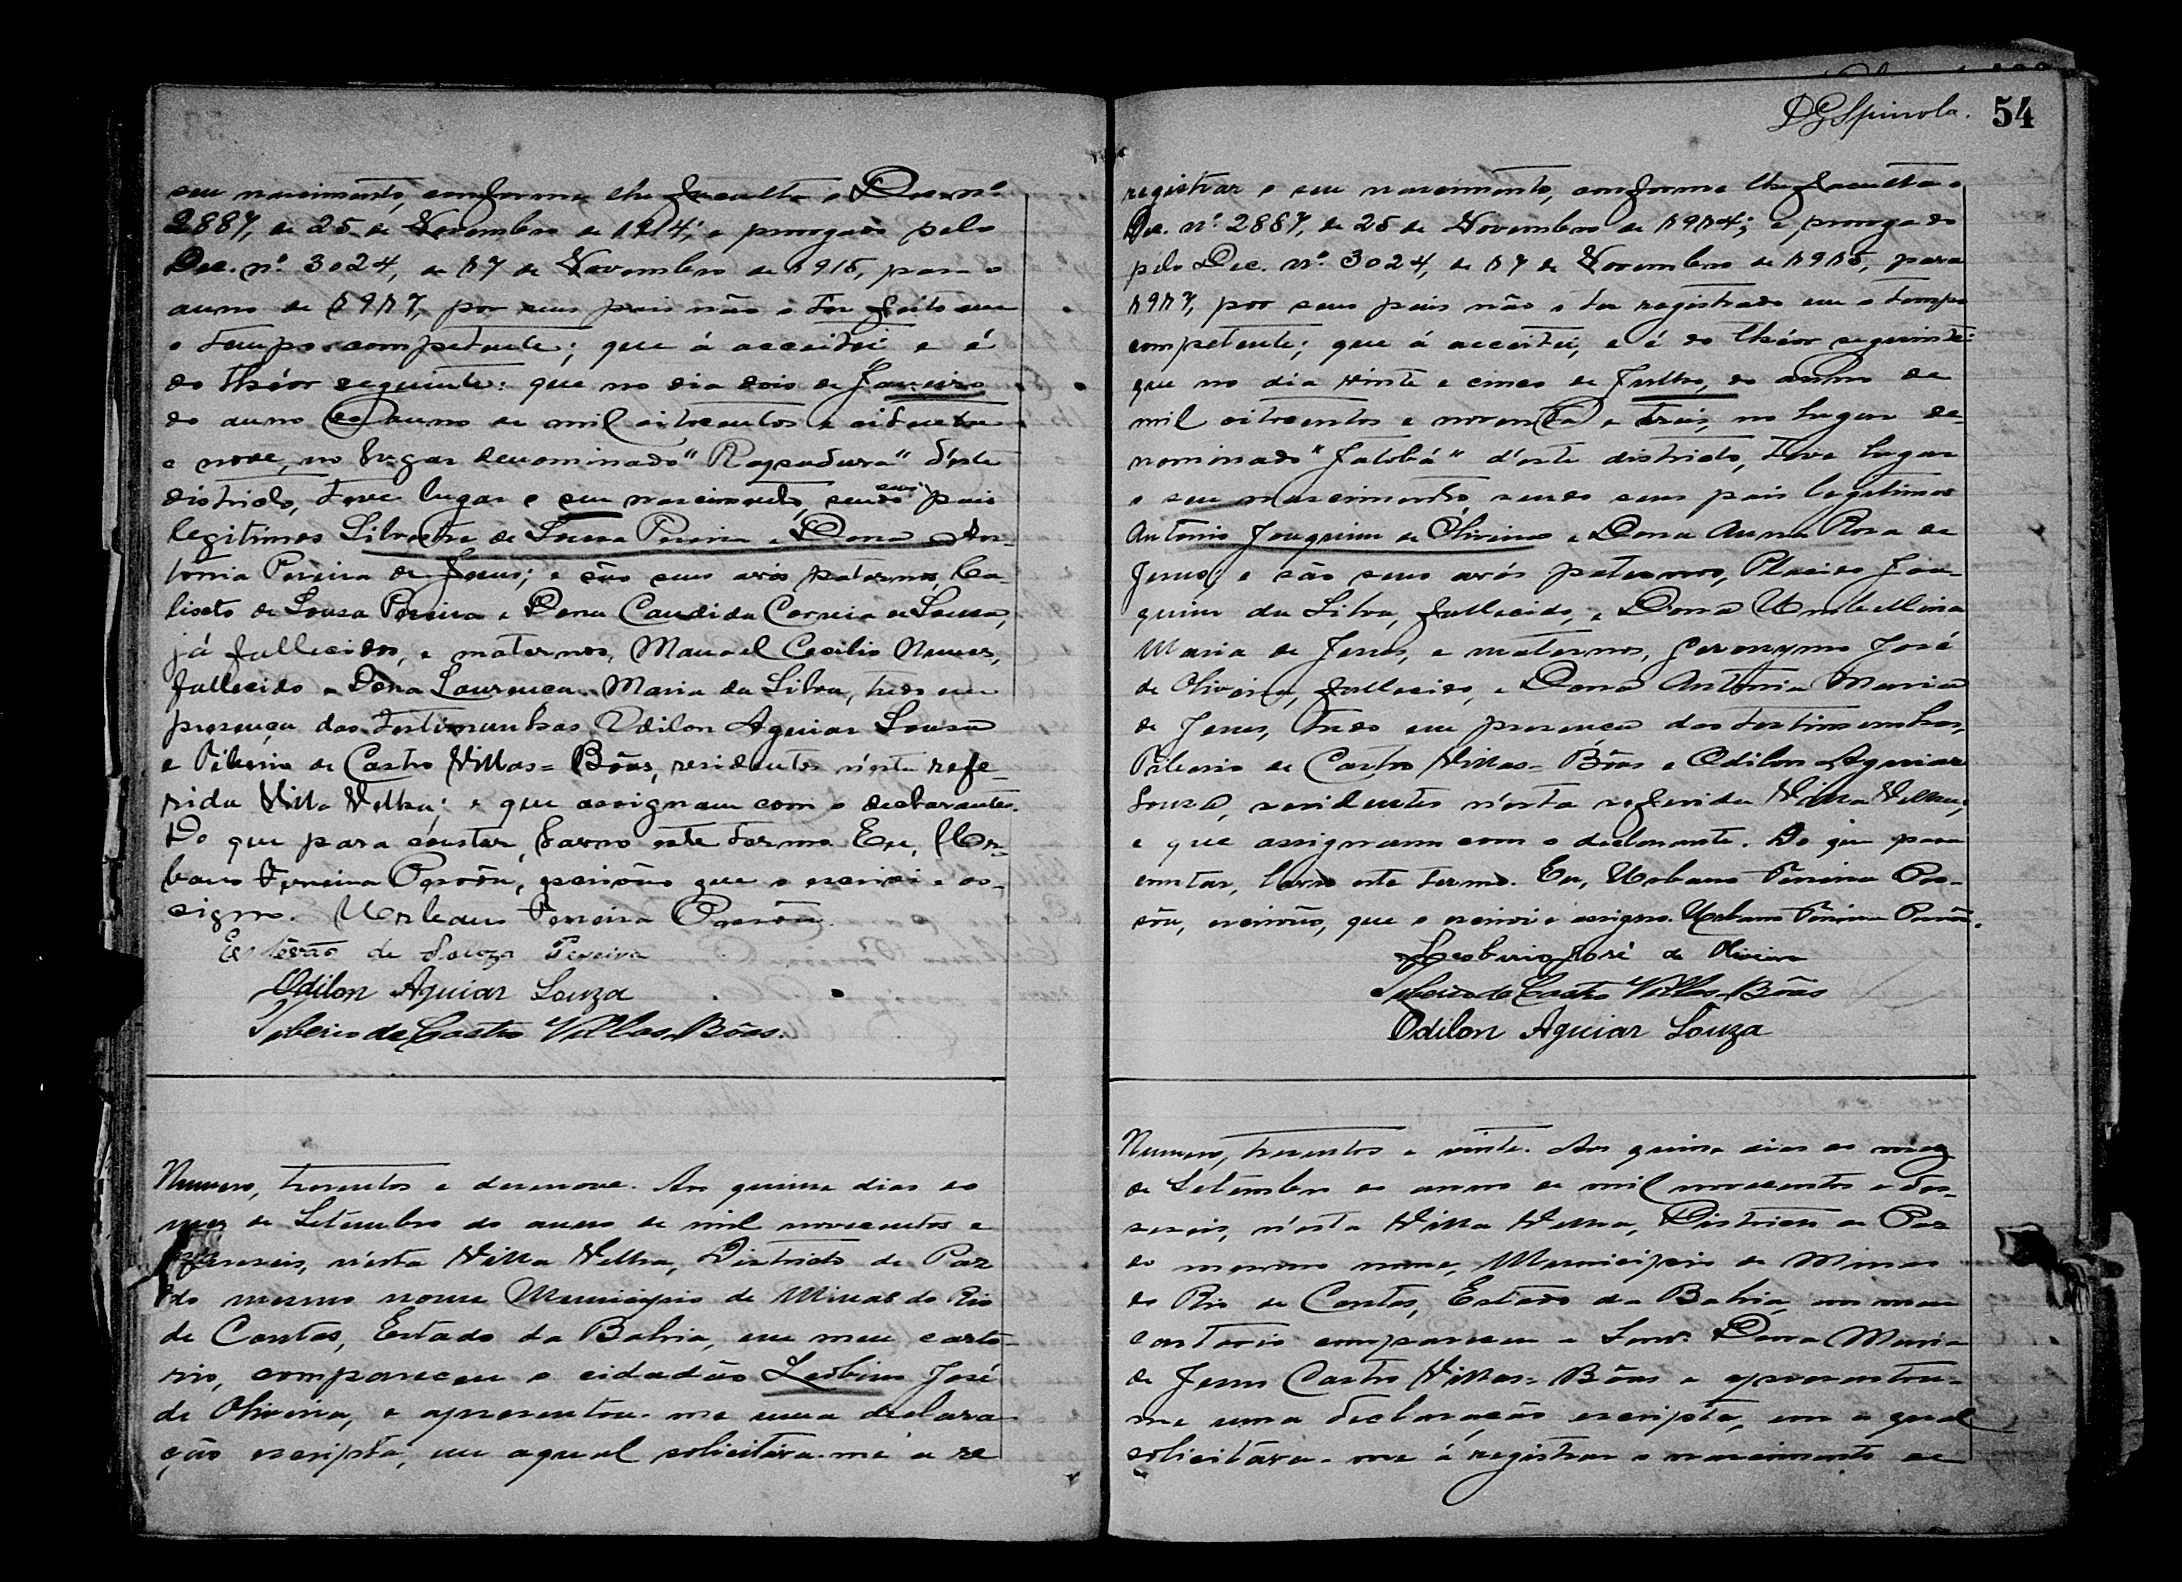 seu nascimento, conforme lhe faculta o Dec. nº
2887, de 25 de Novembro de 1914; e prorogado pelo
Dec. nº 3024, de 17 de Novembro de 1915, para o
anno de 1917, por seus pais não o ter feito em
o tempo competente; que á acceitei e é
do théor seguinte: que no dia dois de Janeiro
do anno do anno de mil oitocentos e oitenta
e nove, no lugar denominado "Rapadura" d'este
districto, teve lugar o seu nascimento, sendo seus pais
legitimos Silvestre de Sousa Pereira e Dona An-
tonia Pereira de Jesus; e são seus avós paternos, Ca-
lixto de Sousa Pereira e Dona Candida Correia de Sousa,
já fallecidos, e maternos, Manoel Cecilio Nunes,
fallecido e Dona Lourença Maria da Silva, tudo em
presença das testimunhas Odilon Aguiar Sousa
e Tiberio de Castro Villas=Bôas, residentes n'esta refe-
rida Villa Velha; e que assignam com o declarante.
Do que para constar, lavro este termo. Eu, Ur-
bano Ferreira, escrivão que o escrivi e as-
signo. Urbano Ferreira
Estevão de Souza Pereira
Odilon Aguiar Souza
Tiberio de Castro Villas Bôas.
Numero, trezentos e desenove. Aos quinse dias do
mez de Setembro do anno de mil novecentos e
deseseis, n'esta Villa Velha, Districto de Paz
do mesmo nome Municipio de Minas do Rio
de Contas, Estado da Bahia, em meu carto-
rio, compareceu o cidadão Leobino José
de Oliveira, e apresentou-me uma declara-
ção escripta, em a qual solicitára-me a re
DGSpinola. 54
registrar o seu nascimento, conforme lhe faculta o
Dec. nº 2887, de 25 de Novembro de 1914; e prorogado
pelo Dec. nº 3024, de 17 de Novembro de 1915, para
1917, por seus pais não o ter registrado em o tempo
competente; que á acceitei, e é do théor seguinte:
que no dia vinte e cinco de Julho, do anno de
mil oitocentos e noventa e treis, no lugar de-
nominado "Jatobá" d'este districto, teve lugar
o seu nascimento, sendo seus pais legitimos
Antonio Joaquim de Oliveira e Dona Anna Rosa de
Jesus; e são seus avós paternos, Placido Joa-
quim da Silva, fallecido, e Dona Umbellina
Maria de Jesus, e maternos, Geronymo José
de Oliveira, fallecido, e Dona Antonia Maria
de Jesus, tudo em presença das testimunhas,
Tiberio de Castro Villas=Bôas e Odilon Aguiar
Souza, residentes n'esta referida Villa Velha;
e que assignam com o declarante. Do que para
constar, lavro este termo. Eu, Urbano Ferreira
escrivão, que o escrivi e assigno. Urbano Ferreira
Leobino José de Oliveira
Tiberio de Castro Villas Bôas
Odilon Aguiar Souza
Numero, trezentos e vinte. Aos quinse dias do mez
de Setembro do anno de mil novecentos e des-
seseis, n'esta Villa Velha, Districto de Paz
do mesmo nome, Municipio de Minas
do Rio de Contas, Estado da Bahia, em meu
cartorio compareceu a Snrª Dona Maria
de Jesus Castro Villas=Bôas e apresentou-
me uma declaração escripta, em a qual
solicitára-me á registrar o nascimento de